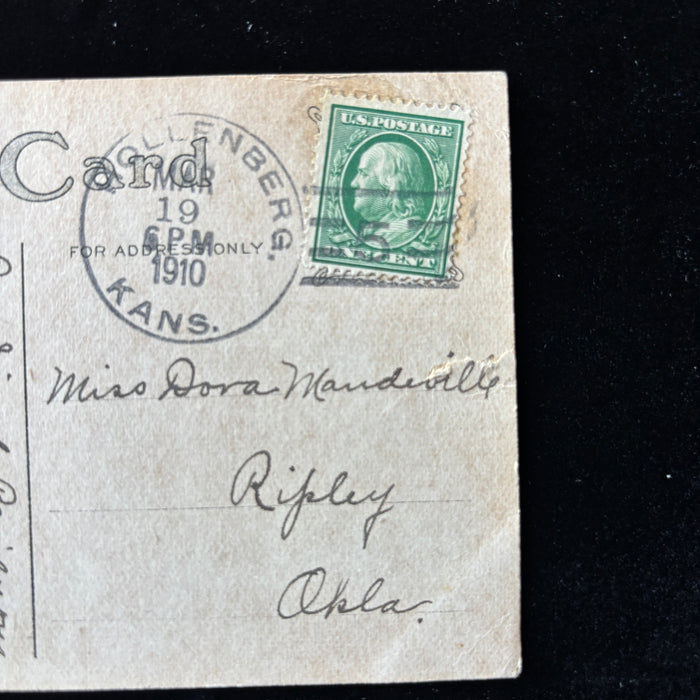 Card
HOLLENBERG,
MAR
19
6 PM
1910
KANS.
U.S.POSTAGE
5
ONE CENT
FOR ADDRESS ONLY
Miss Dora Mandeville
Ripley
Okla.